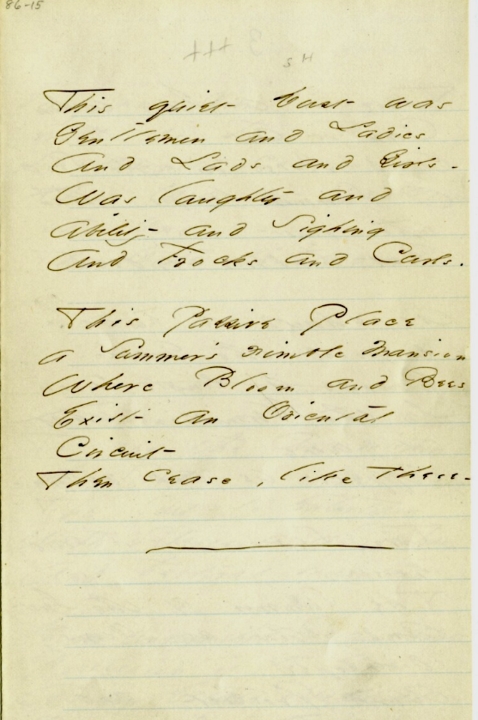 86-15
+++
This quiet Dust was
Gentlemen and Ladies
And Lads and Girls -
Was laughter and
Ability and Sighing
And Frocks and Curls.
This Passive Place
a Summer's nimble mansion
Where Bloom and Bees
Exist an Oriental
Circuit
Then cease, like these -